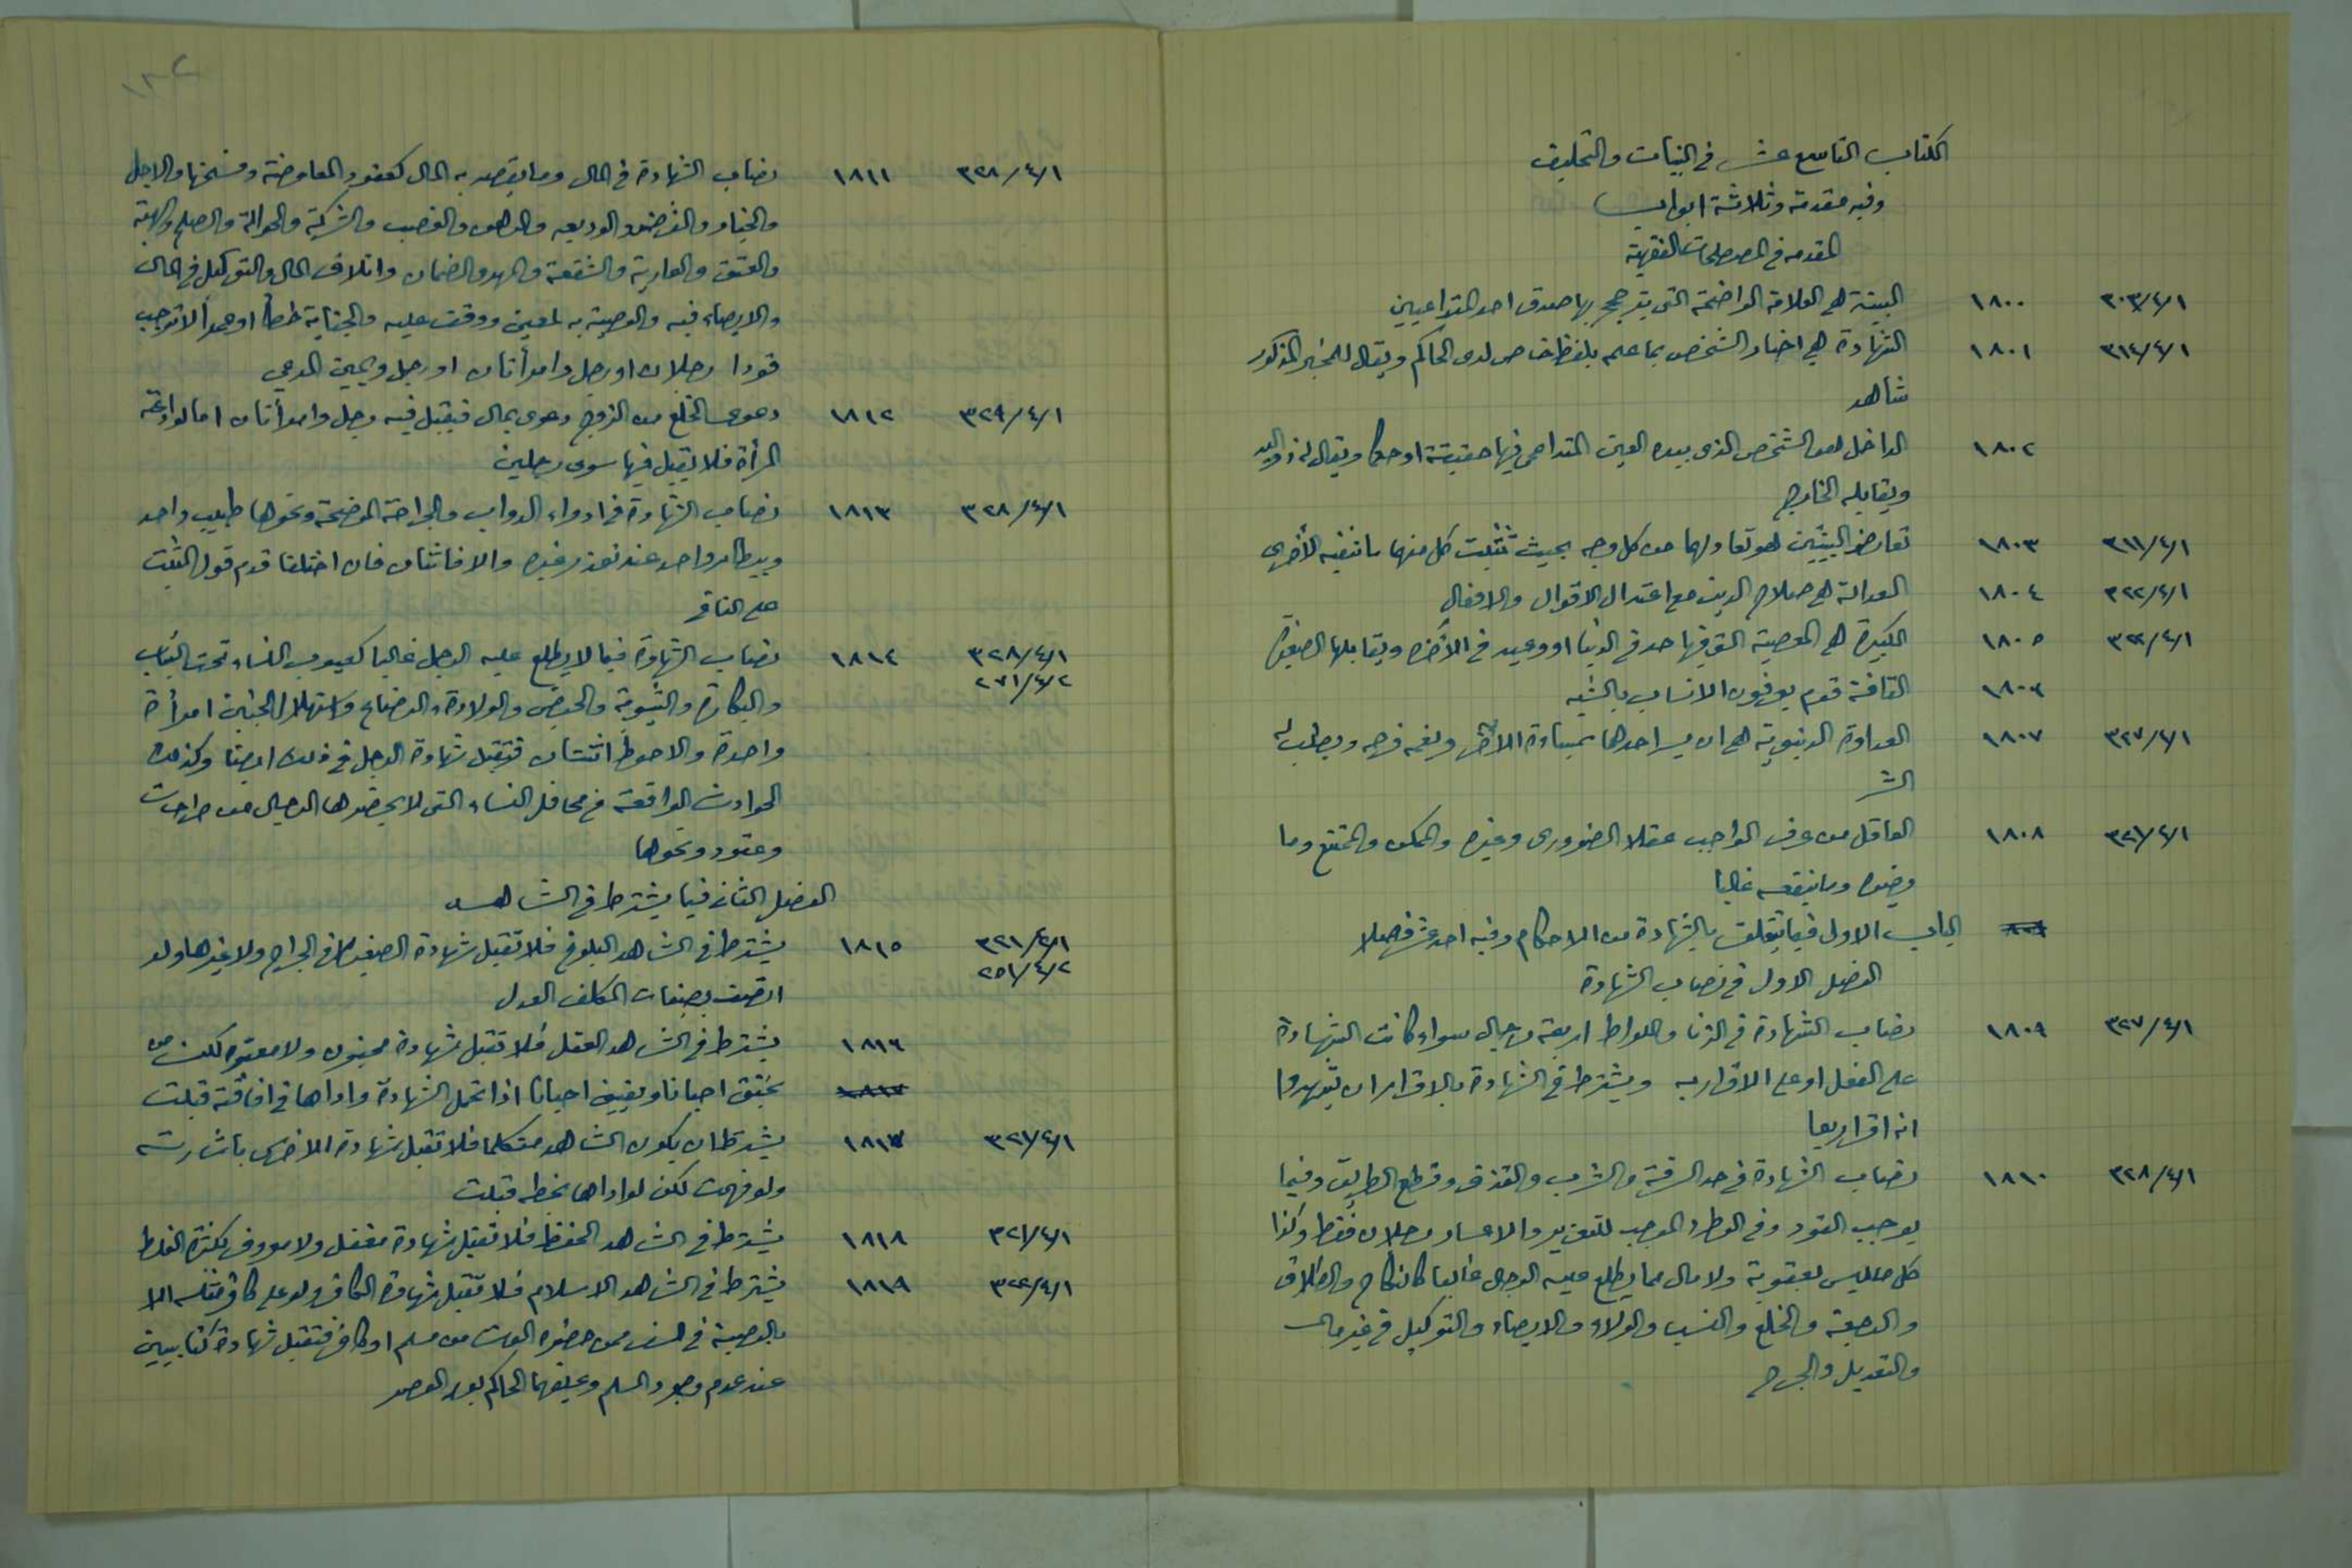 الكتاب التاسع عشر في البينات والتحليف
وفيه مقدمة وثلاثة ابواب
المقدمه في المصطلحات الفقهية
٣٠٣/٤/١ ١٨٠٠ البينة هي العلامة الواضحة التي يترجح بها صدق احد المتداعيين
٣١٤/٤/١ ١٨٠١ الشهادة هي اخبار الشخص بما علم بلفظ خاص لدى الحاكم ويقال للمخبر المذكور
شاهد
١٨٠٢ الداخل هو الشخص الذي بيده العين المتداعى فيها حقيقة او حكما ويقال له ذو اليد
ويقابله الخارج
٣١١/٤/١ ١٨٠٣ تعارض البينتين هو تعادلهما من كل وجه بحيث تثبت كل منهما ما تنفيه الأخرى
٣٢٢/٤/١ ١٨٠٤ العدالة هي صلاح الدين مع اعتدال الاقوال والافعال
٣٢٢/٤/١ ١٨٠٥ الكبيرة هي المعصية التي فيها حد في الدنيا او وعيد في الآخره ويقابلها الصغيرة
١٨٠٦ القافة قوم يعرفون الانساب بالشبه
٣٢٧/٤/١ ١٨٠٧ العداوة الدنيوية هي ان يسر احدهما بمساءة الآخر ويغمه فرحه ويطلب له
الشر
٣٢١/٤/١ ١٨٠٨ العاقل من عرف الواجب عقلا الضروري وغيره والممكن والممتنع وما
يضره وما ينفعه غالبا
الباب الاول فيما يتعلق بالشهادة من الاحكام وفيه احد عشر فصلا
الفصل الاول في نصاب الشهادة
٣٢٧/٤/١ ١٨٠٩ نصاب الشهادة في الزنا واللواط اربعة رجال سواء كانت الشهادة
على الفعل او على الاقرار به ويشترط في الشهادة بالاقرار ان يشهدوا
انه اقر اربعا
٣٢٨/٤/١ ١٨١٠ نصاب الشهادة في حد السرقة والشرب والقذف وقطع الطريق وفيما
يوجب القود وفي الوطء الموجب للتعزير والاعسار رجلان فقط وكذا
كل ما ليس بعقوبة ولا مال مما يطلع عليه الرجال غالبا كالنكاح والطلاق
والرجعة والخلع والنسب والولاء والايصاء والتوكيل في غير مال
والتعديل والجرح
١٣٢
٣٢٨/٤/١ ١٨١١ نصاب الشهادة في المال وما يقصد به المال كعقود المعاوضة وفسخها والاجل
والخيار والقرض والوديعه والرهن والغصب والشركة والحوالة والصلح والهبة
والعتق والعارية والشفعة والمهر والضمان واتلاف المال والتوكيل في المال
والايصاء فيه والوصية به لمعين ووقف عليه والجناية خطأ او عمدا لا توجب
قودا رجلان او رجل وامرأتان او رجل ويمين المدعي
٣٢٩/٤/١ ١٨١٢ دعوى الخلع من الزوج دعوى بمال فيقبل فيه رجل وامرأتان اما لو ادعته
المرأة فلا يقبل فيها سوى رجلين
٣٢٨/٤/١ ١٨١٣ نصاب الشهادة في ادواء الدواب والجراحة الموضحة ونحوها طبيب واحد
وبيطار واحد عند تعذر غيره والا فاثنان فان اختلفا قدم قول المثبت
على النافي
٣٢٨/٤/١ ١٨١٤ نصاب الشهادة فيما لا يطلع عليه الرجال غالبا كعيوب النساء تحت الثياب
٢٧١/٤/٢
والبكارة والثيوبة والحيض والولادة والرضاع واستهلال الجنين امرأة
واحدة والاحوط اثنتان فتقبل شهادة الرجل في ذلك ايضا وكذلك
الحوادث الواقعة في محافل النساء التي لا يحضرها الرجال من جراحات
وعقود ونحوها
الفصل الثاني فيما يشترط في الشاهد
٣٢١/٤/١ ١٨١٥ يشترط في الشاهد البلوغ فلا تقبل شهادة الصغير لا في الجراح ولا غيرها ولو
٢٥١/٤/٢
اتصف بصفات المكلف العدل
١٨١٦ يشترط في الشاهد العقل فلا تقبل شهادة مجنون ولا معتوه لكن من
يخنق احيانا ويفيق احيانا اذا تحمل الشهادة واداها في افاقته قبلت
٣٢١/٤/١ ١٨١٧ يشترط ان يكون الشاهد متكلما فلا تقبل شهادة الاخرس باشارته
ولو فهمت لكن لو اداها بخطه قبلت
٣٢١/٤/١ ١٨١٨ يشترط في الشاهد الحفظ فلا تقبل شهادة مغفل ولا معروف بكثرة الغلط
٣٢٢/٤/١ ١٨١٩ يشترط في الشاهد الاسلام فلا تقبل شهادة الكافر ولو على كافر مثله الا
بالوصية في السفر ممن حضره الموت من مسلم او كافر فتقبل شهادة كتابيين
عند عدم وجود المسلم وحلفهما الحاكم بعد العصر